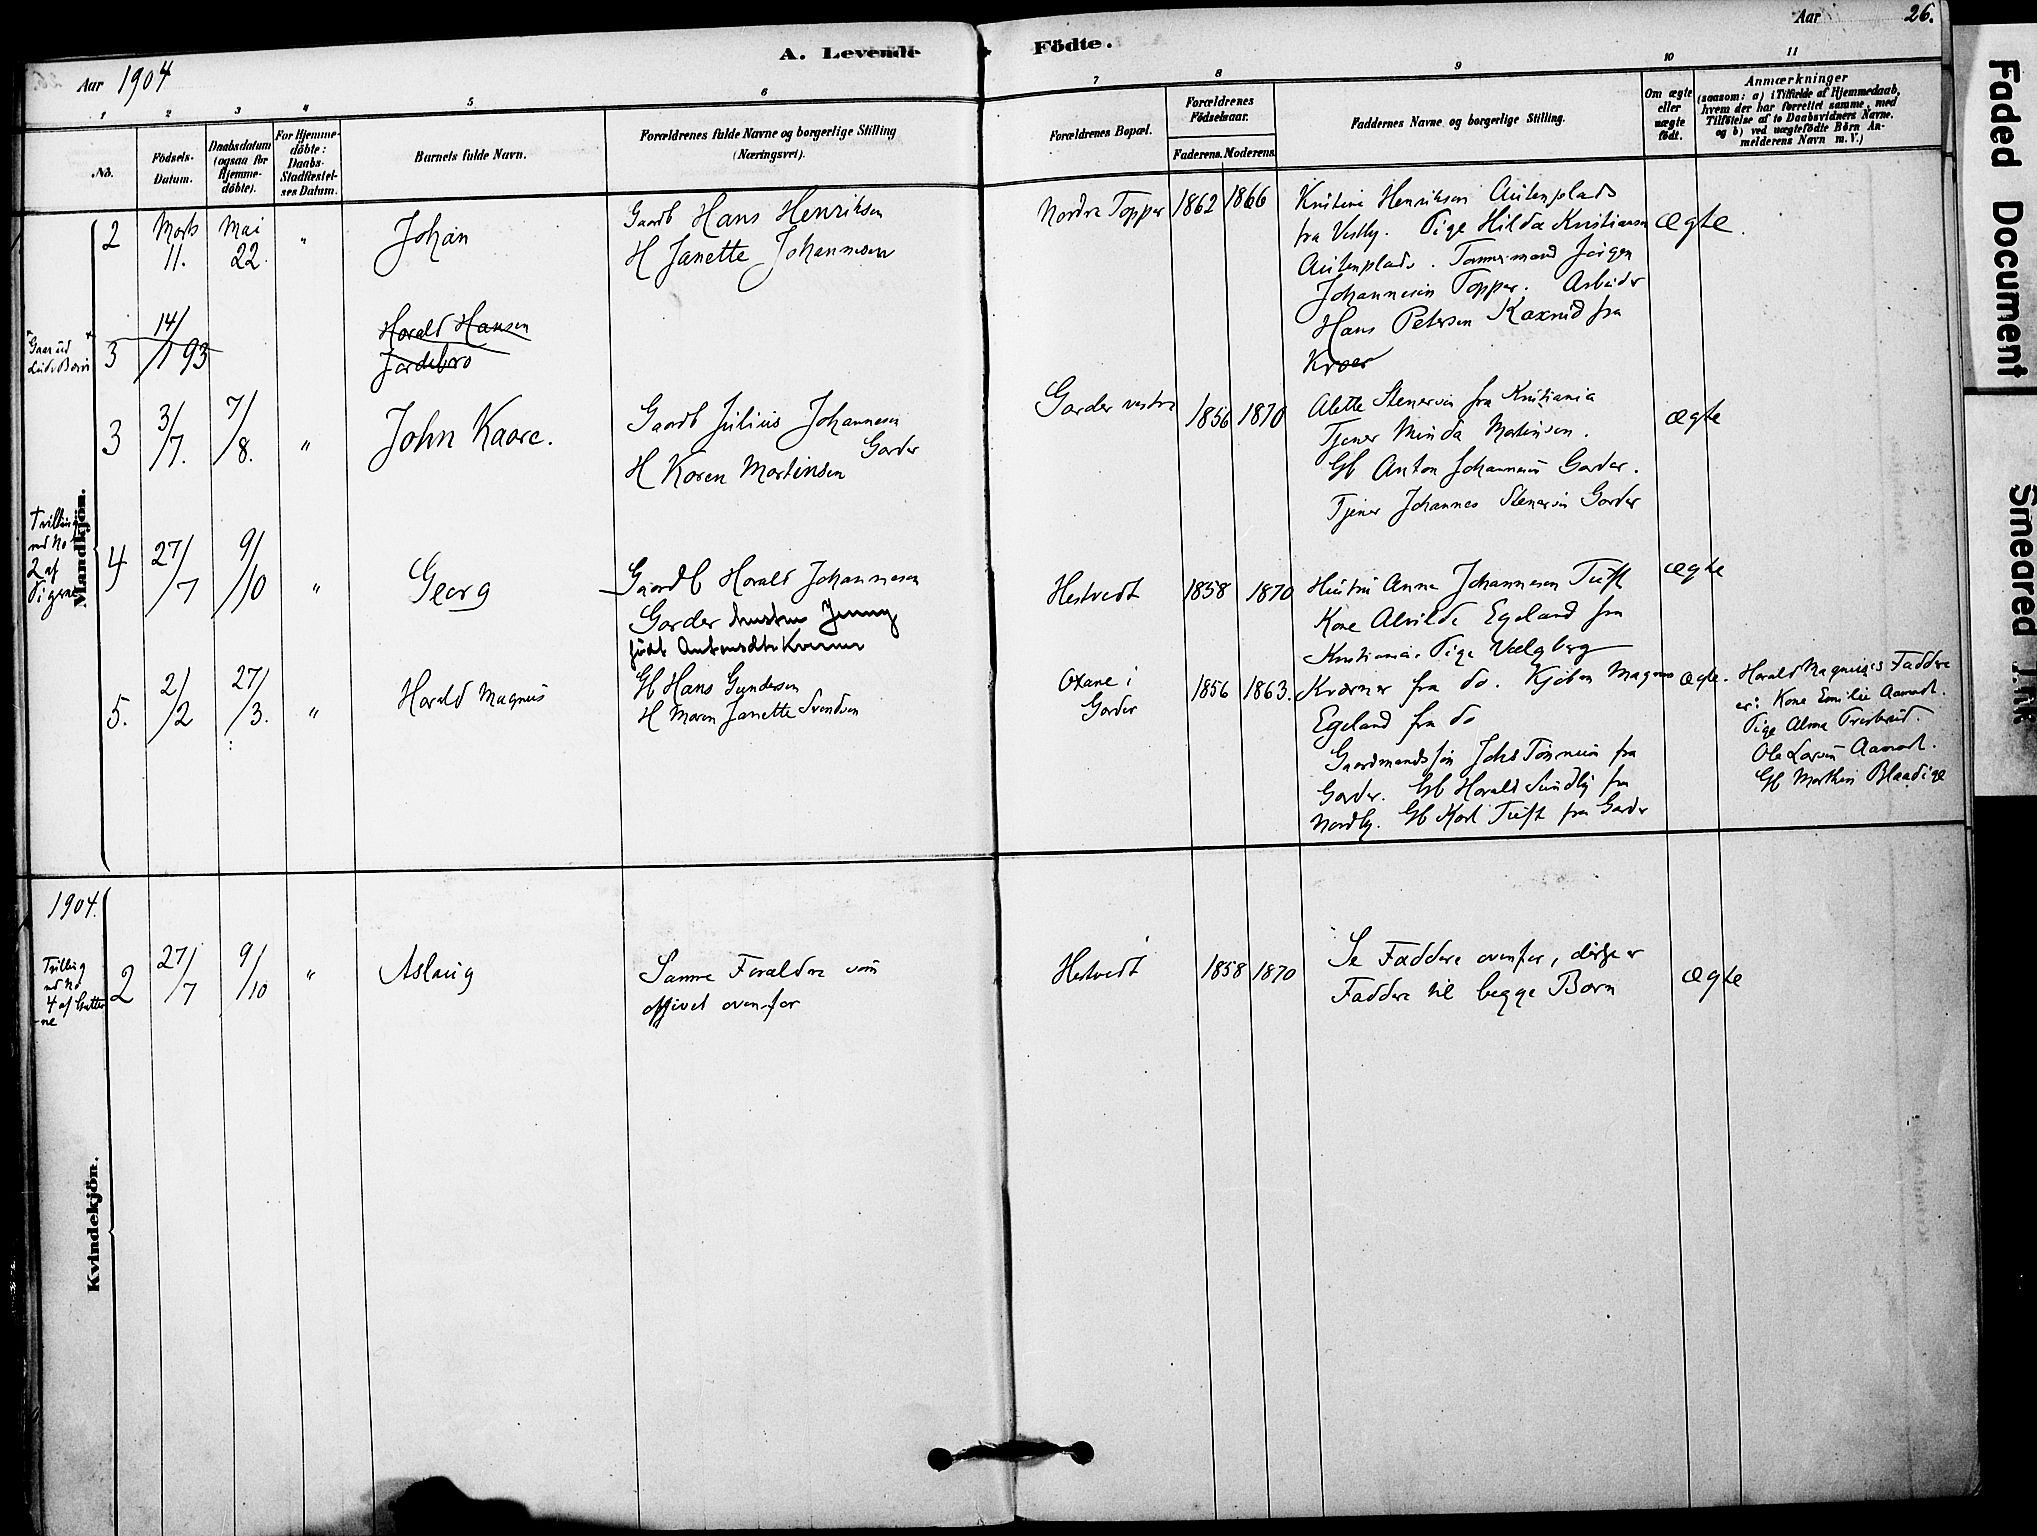 Aar 1904
A. Levende Födte.
Aar 26.
1 2 3 4 5 6 7 8 9 10 11
No.
Födsels-
Datum.
Daabsdatum
(ogsaa for
Hjemme-
döbte).
For Hjemme-
döbte:
Daabs-
Stadfæstel-
ses Datum.
Barnets fulde Navn.
Forældrenes fulde Navne og borgerlige Stilling
(Næringsvei).
Forældrenes Bopæl.
Forældrenes
Födselsaar.
Faderens. Moderens.
Faddernes Navne og borgerlige Stilling.
Om ægte
eller
uægte
födt.
Anmærkninger
(saasom: a) i Tilfælde af Hjemmedaab,
hvem der har forrettet samme, med
Tilföielse af to Daabsvidners Navne,
og b) ved uægtefödte Börn An-
melderens Navn m.V.)
Mandkjön.
2
Marts
11.
Mai
22.
"
Johan
Gaardb Hans Henriksen
H Janette Johannesen
Nordre Topper
1862 1866
Kristine Henriksen
fra Vestby. Pige Hilda Kristiansen
Tømmermand Jørgen
Johannesen Topper. Arbeider
Hans Petersen fra
Kroer
ægte.
3
14/
/1 93
Harald Hansen
3
3/
/7.
7/
/8.
"
John Kaare.
Gaardb Julius Johannesen
Garder
H Karen Martinsen
Garder vestre
1856 1870
Alette Stenersen fra Kristiania
Tjener Minda Martinsen.
Gb Anton Johannesen Garder.
Tjener Johannes Stenersen Garder
ægte
Tvilling
med No
2 af
Pigerne
4
27/
/7
9/
/10
"
Georg
Gaardb Harald Johannesen
Garder hustru Jenny
født
Hestvedt
1858 1870
Hustru Anna Johannesen Tuft
Kone Alvilde Egeland fra
Kristiania. Pige Valgberg
Kværner fra do. Kjøbm Magnus
Egeland fra do
Gaardmandssøn Johs Tønnesen fra
Garder. Gb Harald Sundby fra
Nordby. Gb Karl Tuft fra Garder
ægte
5.
2/
/2
27/
/3.
"
Harald Magnus
Gb Hans Gundersen
H Maren Janette Svendsen
Oxane i
Garder
1856 1863.
ægte.
Harald Magnus's Faddere
er: Kone Emilie Aamodt.
Pige Alma
Ole Larsen Aamodt.
Gb
1904.
Kvindekjön.
Tvilling
med No
4 af Gutter
-ne
2
27/
/7
9/
/10
"
Aslaug
Samme Forældre som
opgivet ovenfor
Hestvedt
1858 1870
Se Faddere ovenfor, disse er
Faddere til begge Børn
ægte
Faded Document
Smeared Ink